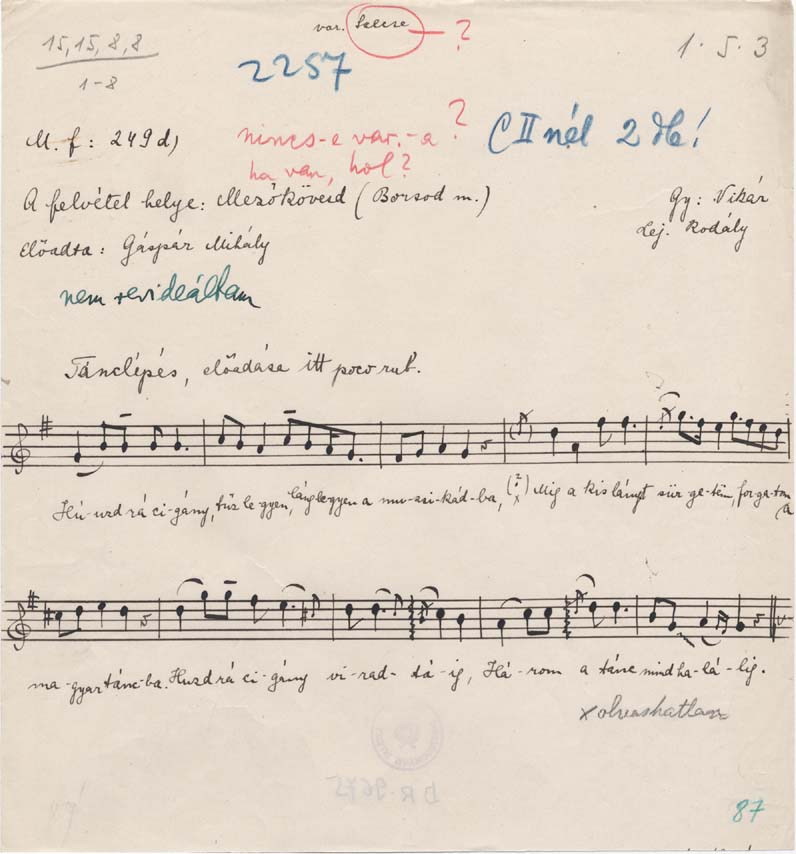 var. Szecse – ?
15, 15, 8, 8
1-8
2257
1. 5. 3
M. f: 249d)
nincs-e var.-a ?
ha van, hol?
C II nél 2 db!
A felvétel helye: Mezőkövesd (Borsod m.)
Gy: Vikár
Lej. Kodály
Előadta: Gáspár Mihály
nem revideáltam
Tánclépés, előadása itt poco rub.
Hú-uzd rá ci-gány, tűz le-gyen, láng legyen a mu-usi-kád-ba, Míg a kis lányt sür-ge-tem, for-ga-tom a
ma-gyar tánc-ba. Huzd rá ci-gány vi-rad-tá-ig, Há-rom a tánc mind ha-lá-lig.
x olvashatlan
DR-9675
87